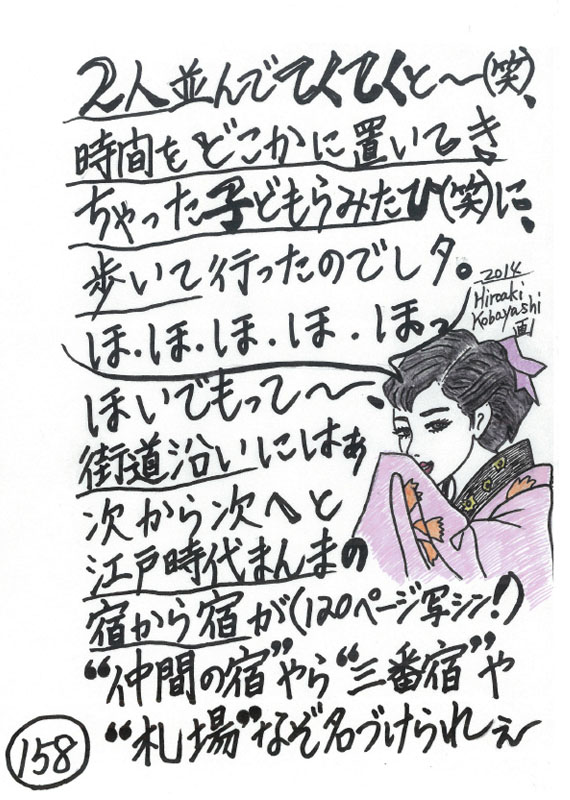 2人並んでてくてくと〜(笑)、
時間をどこかに置いてき
ちゃった子どもらみたひ(笑)に、
歩いて行ったのでしタ。
2014
Hiroaki
Kobayashi
画
ほ・ほ・ほ・ほ・ほっ
ほいでもって〜、
街道沿いにはぁ
次から次へと
江戸時代まんまの
宿から宿が(120ページ写シン!)
“仲間の宿”やら“三番宿”や
“札場”なぞ名づけられぇ〜
158